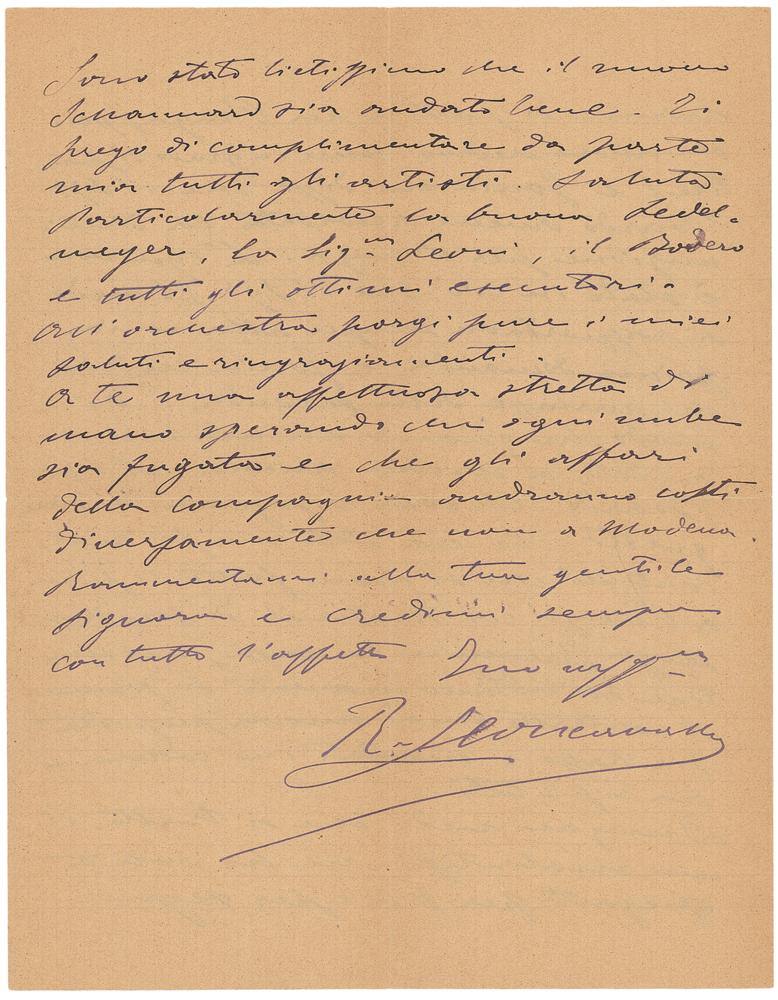 Sono stato lietissimo che il nuovo
Schaunard sia andato bene. Ti
prego di complimentare da parte
mia tutti gli artisti. Saluta
particolarmente la buona Ledel-
meyer, la Sig.na Leoni, il Bodero
e tutti gli ottimi esecutori.
All'orchestra porgi pure i miei
saluti e ringraziamenti.
A te una affettuosa stretta di
mano sperando che ogni nube
sia fugata e che gli affari
della compagnia andranno costì
diversamente che non a Modena.
Rammentami alla tua gentile
signora e credimi sempre
con tutto l'affetto Tuo
R. Leoncavallo